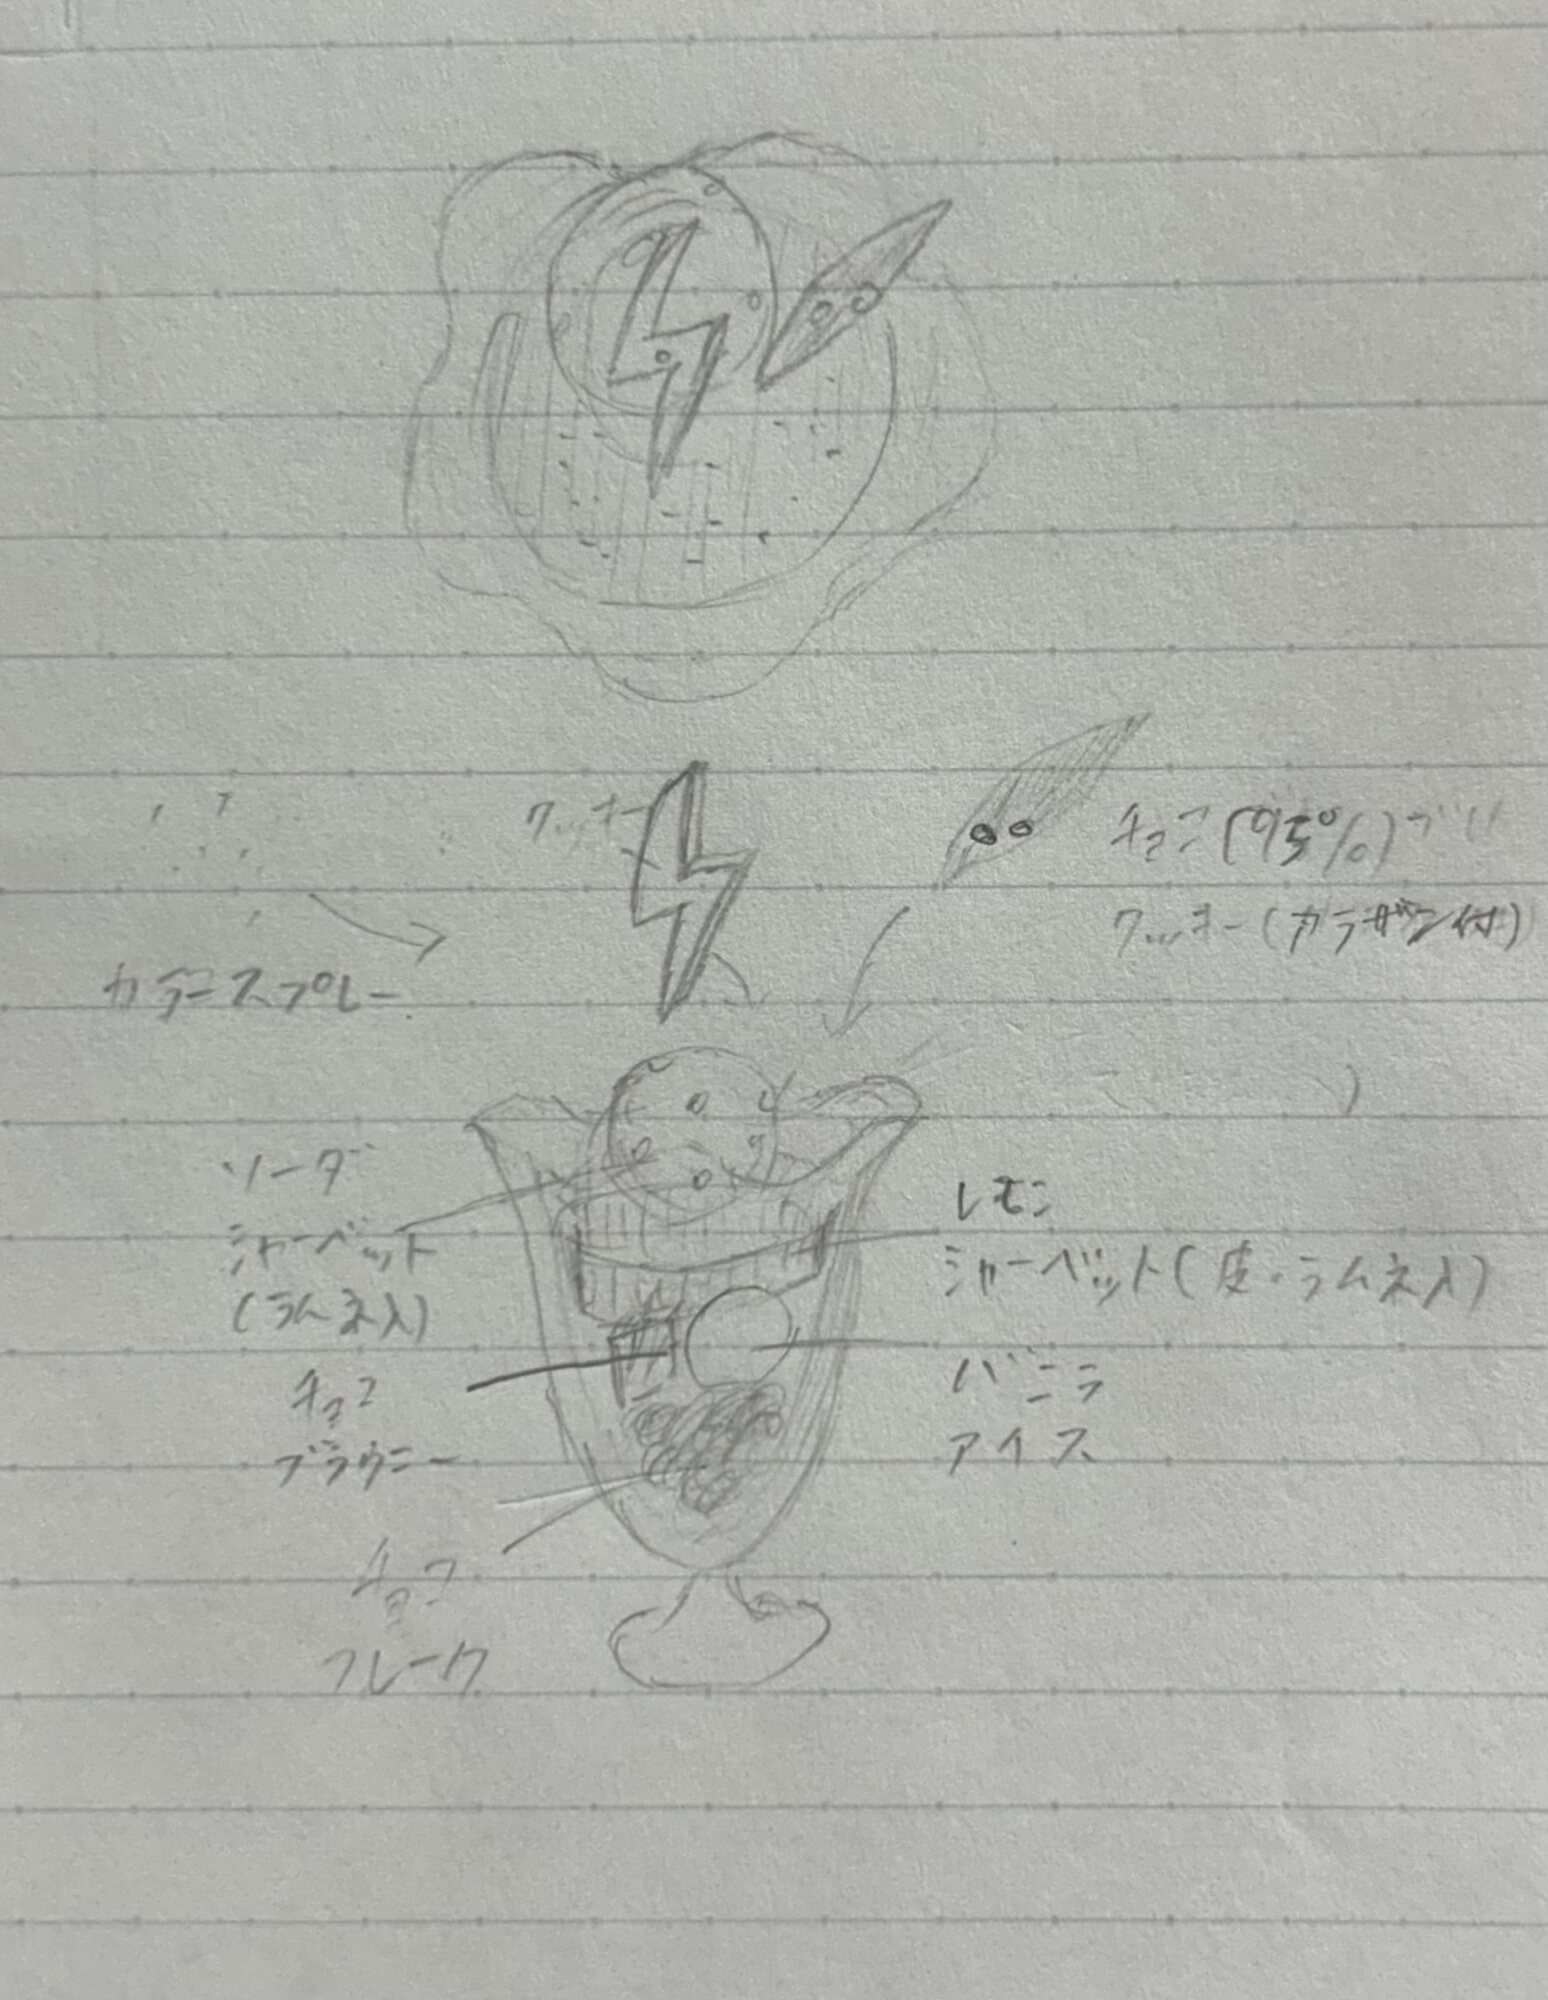 クッキー
チョコ(95%)
クッキー(カラザン付)
カラースプレー
ソーダ
シャーベット
(ラムネ入)
レモン
シャーベット(皮・ラムネ入)
チョコ
ブラウニー
バニラ
アイス
チョコ
フレーク